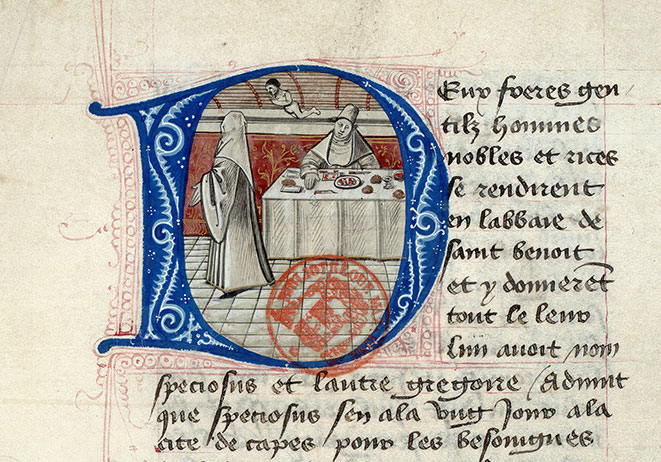 Deux freres gen
tilz hommes
nobles et rices
se rendirent
en labbaie de
saint benoit
et y donnerent
tout le leur
Lun avoit nom
speciosus et lautre gregoire / Advint
que speciosus sen ala ung jour a la
cite de capes pour les besongnes